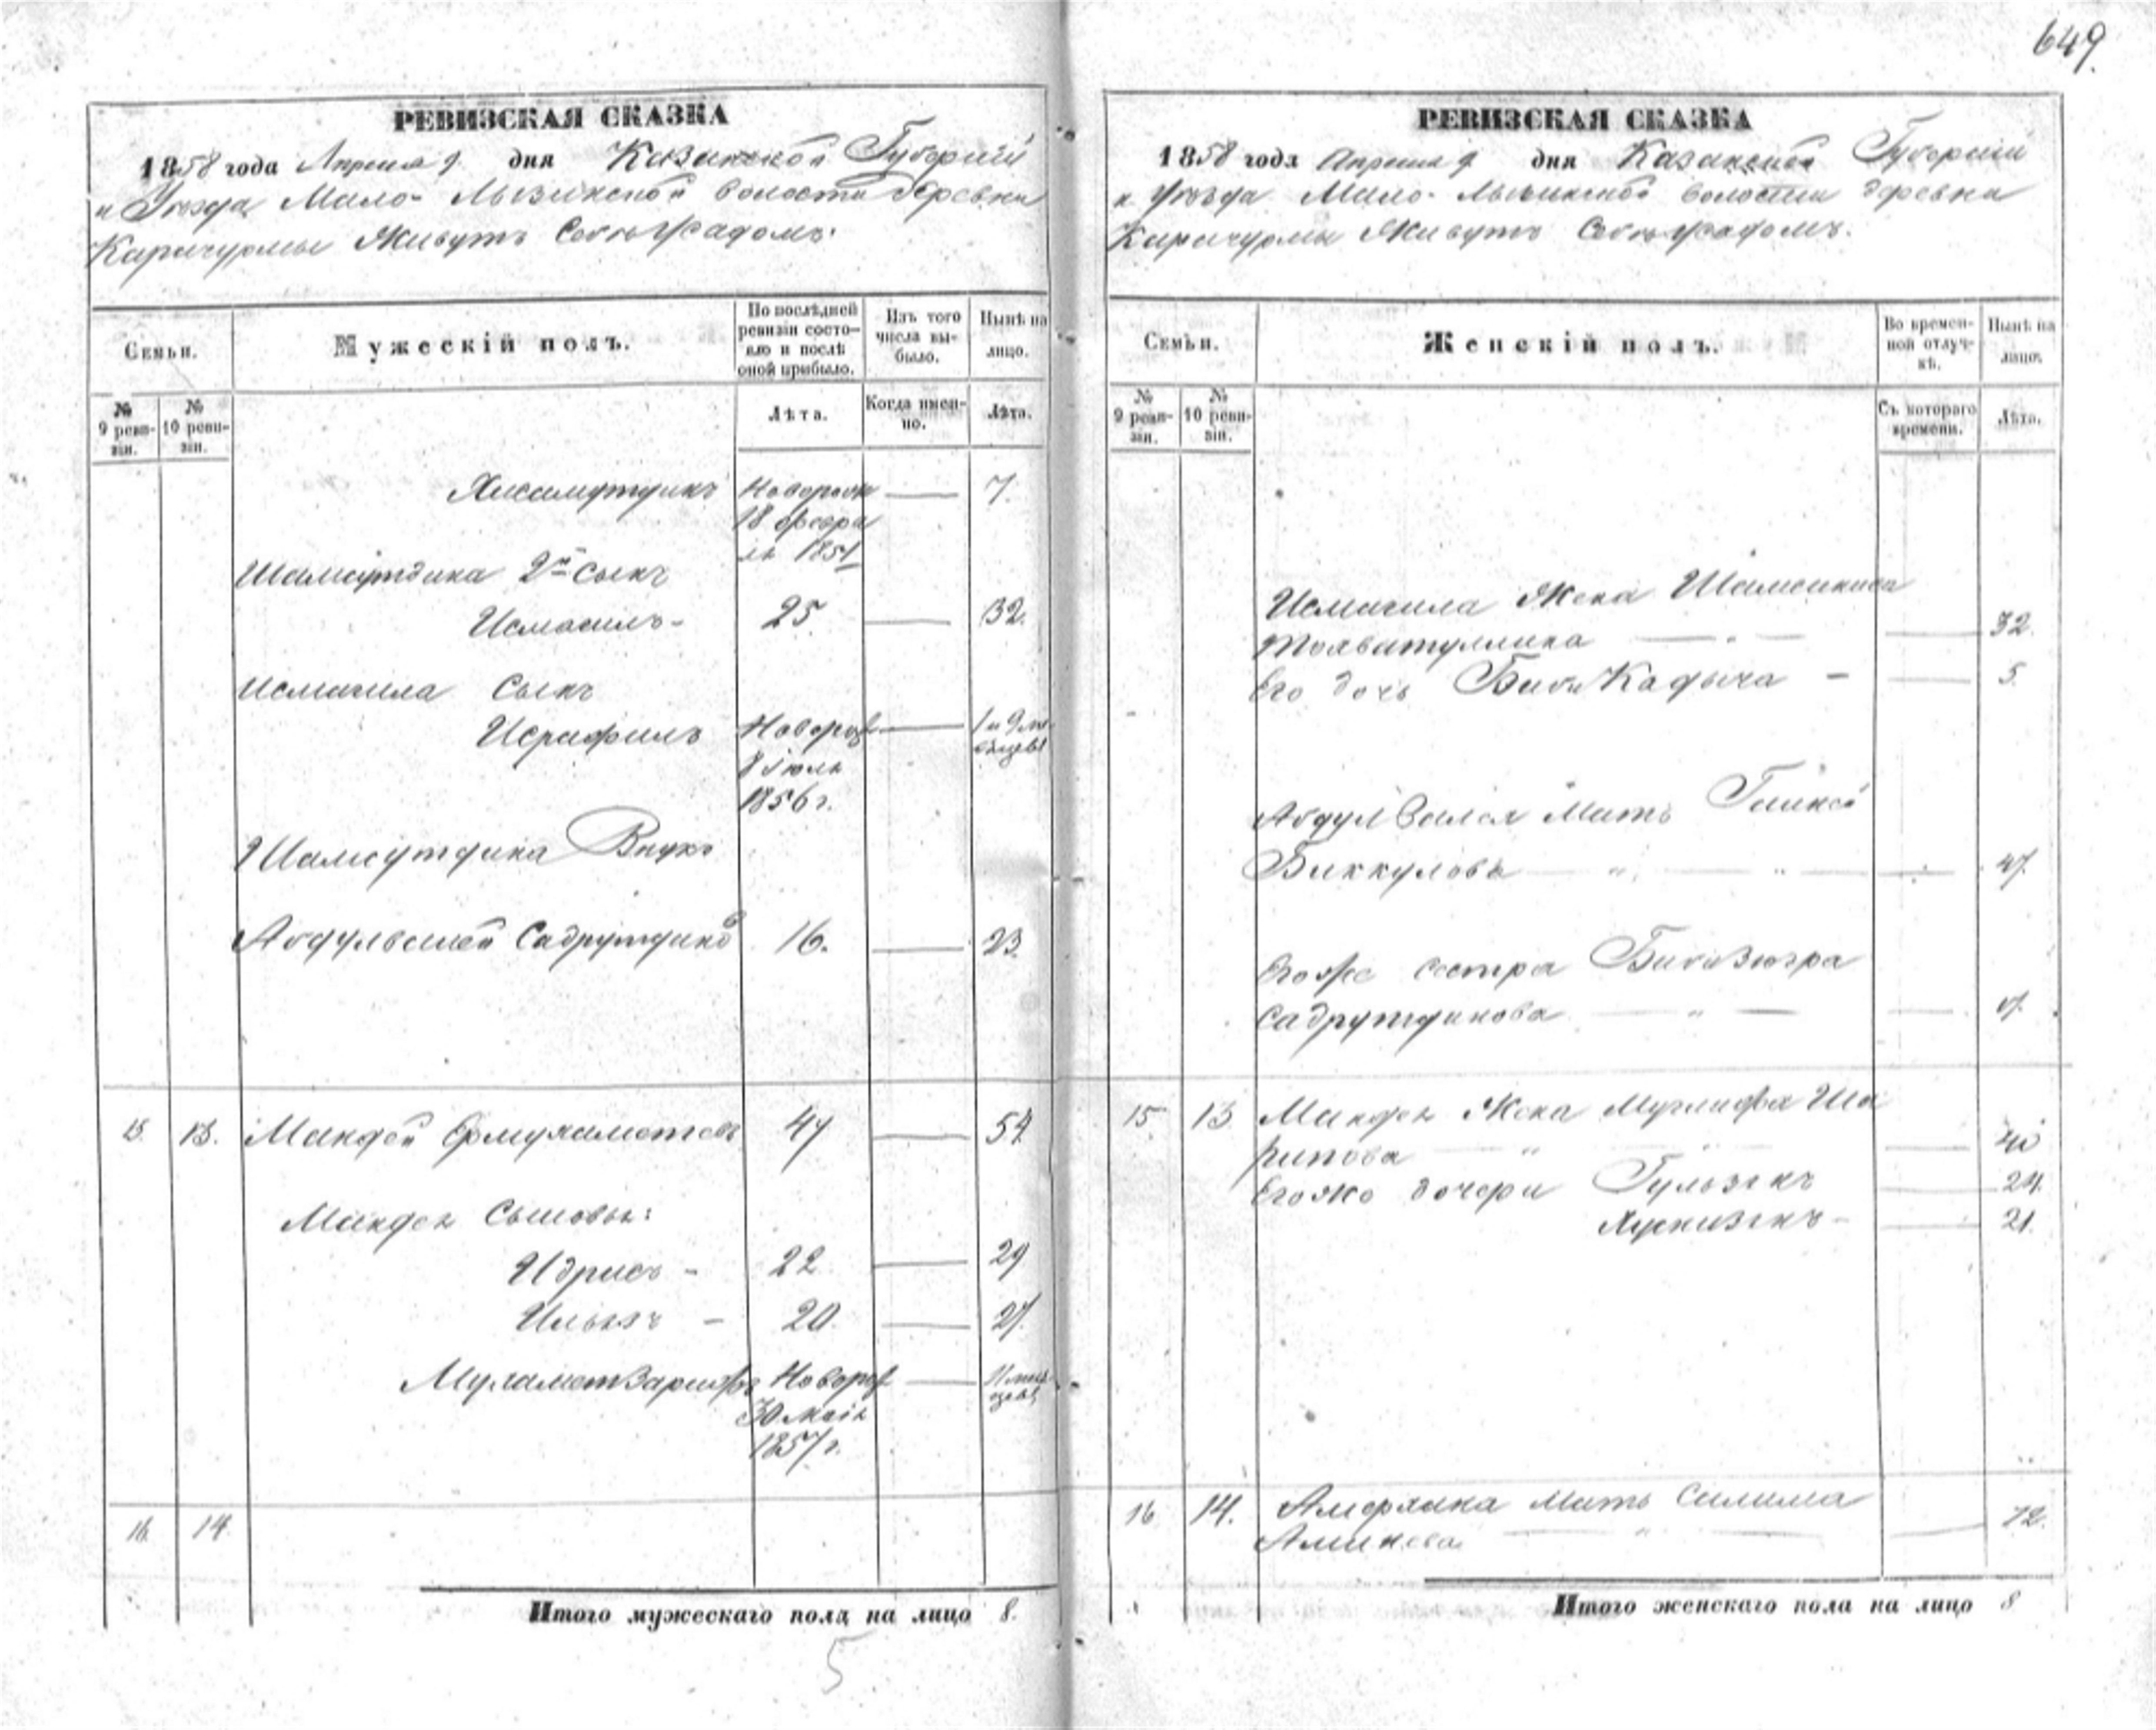 649.
РЕВИЗСКАЯ СКАЗКА
1858 года Апреля 9 дня Казанской Губернiи
и Уѣзда Мало-Лызинской волости деревни
Каричурмы Живутъ
Семьи.
Мужескiй полъ.
По послѣдней ревизiи состояло и послѣ оной прибыло.
Изъ того числа выбыло.
Нынѣ на лицо.
№ 9 ревизiи.
№ 10 ревизiи.
Лѣта.
Когда именно.
Лѣта.
Хисамутдинъ Новорож 7.
18 февра
ля 1851
Шамсутдина 2й сынъ
Исмагилъ - 25 32.
Исмагила сынъ
Исрафилъ Новорож 1 и 9 мѣсяцевъ
8 Iюля
1856 г.
Шамсутдина Внукъ
Абдулвалей Садрутдиновъ 16. 23.
15. 13. Мандей Ермухаметевъ 47 54.
Мандея Сыновья:
Идрисъ - 22 29
Ильязъ - 20 27.
МухаметЗарифъ Новорож 11 мѣсяцевъ
30 маiя
1857 г.
16. 14
Итого мужескаго пола на лицо 8.
5
РЕВИЗСКАЯ СКАЗКА
1858 года Апреля 9 дня Казанской Губернiи
и Уѣзда Мало-Лызинской волости деревни
Каричурмы Живутъ
Семьи.
Женскiй полъ.
Во временной отлучкѣ.
Нынѣ на лицо.
№ 9 ревизiи.
№ 10 ревизiи.
Съ котораго времени.
Лѣта.
Исмагила Жена Шамсиниса
32.
Его дочь БибиКадыча - 5.
АбдулВалея Мать
Биккулова 47.
Егоже сестра БибиЗюгра
Садрутдинова
15 13 Мандея Жена Муглифа Ша
рипова 40
Егоже дочери Гульзянъ 24.
Хуснизянъ - 21.
16 14. Амерхана Мать Салима
Аминева 72.
Итого женскаго пола на лицо 8